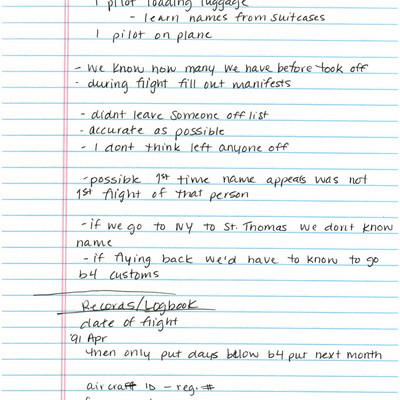 1 pilot loading luggage
- learn names from suitcases
1 pilot on plane
- we know how many we have before took off
- during flight fill out manifests
- didnt leave someone off list
- accurate as possible
- I dont think left anyone off
- possible 1st time name appears was not
1st flight of that person
- if we go to NY to St. Thomas we dont know
name
- if flying back we'd have to know to go
b4 customs
Records/Logbook
date of flight
'91 Apr
then only put days below b4 put next month
aircraft ID - reg. #